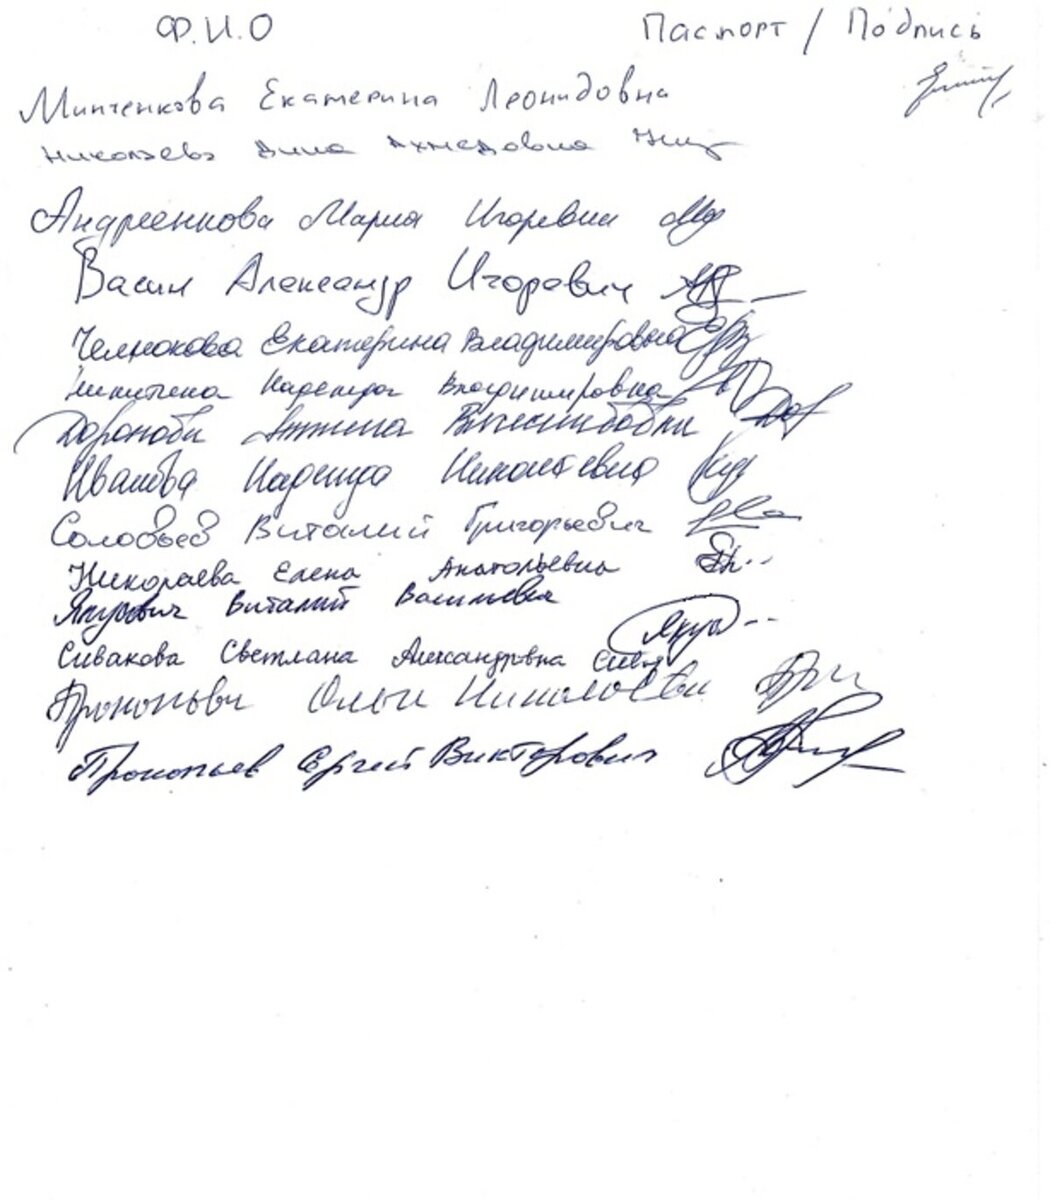 Ф.И.О Паспорт / Подпись
Минченкова Екатерина Леонидовна
Николаева Дина Ахмедовна
Андреенкова Мария Игоревна
Васин Александр Игоревич
Челнокова Екатерина Владимировна
Никитина Надежда Владимировна
Иванова Надежда Николаевна
Соловьев Виталий Григорьевич
Николаева Елена Анатольевна
Якубович Виталий Васильевич
Сивакова Светлана Александровна
Прокопьева Ольга Николаевна
Прокопьев Сергей Викторович